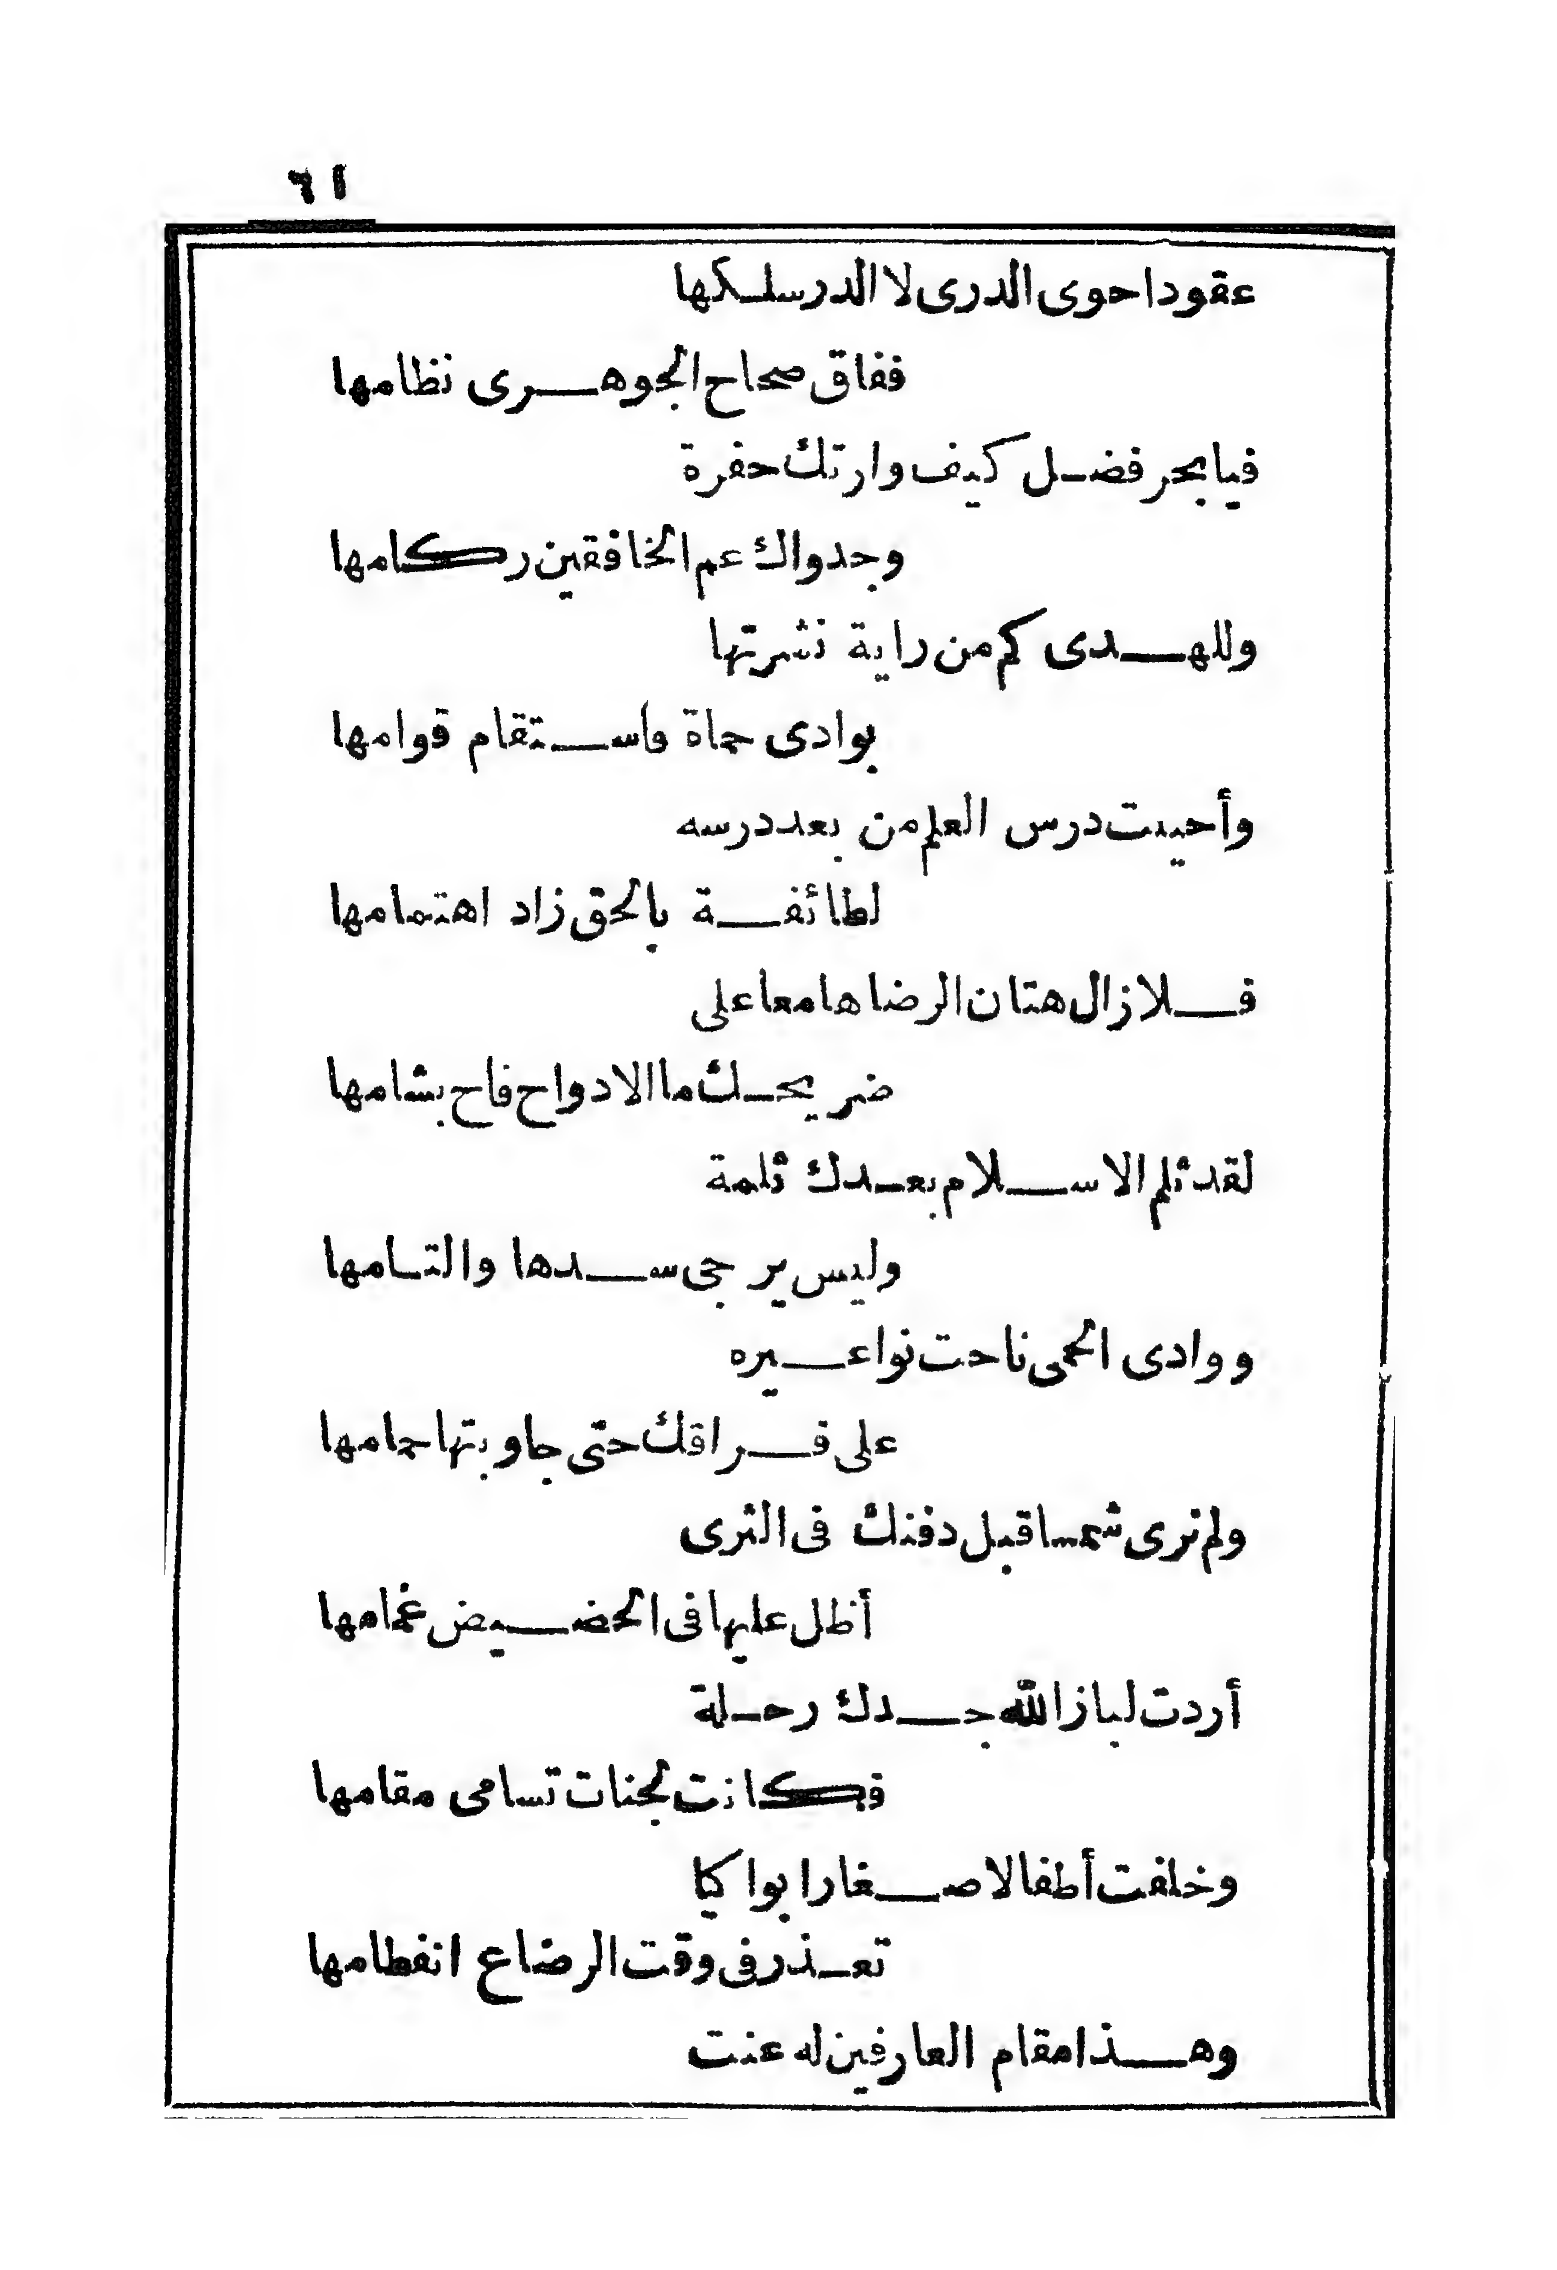 ٦١
عقودا حوى الدرى لا الدر سلكها
ففاق صحاح الجوهرى نظامها
فيا بحر فضل كيف وارتك حفرة
وجدواك عم الخافقين ركامها
وللهدى كم من راية نشرتها
بوادى حماة فاستقام قوامها
وأحييت درس العلم من بعد درسه
لطائفة بالحق زاد اهتمامها
فلا زال هتان الرضا هامعا على
ضريحك ما الادواح فاح بشامها
لقد ثلم الاسلام بعدك ثلمة
وليس يرجى سدها والتامها
ووادى الحمى ناحت نواعيره
على فراقك حتى جاوبتها حمامها
ولم نرى شمسا قبل دفنك فى الثرى
أظل عليها فى الحضيض غمامها
أردت لباز الله جدك رحلة
فكانت لجنات تسامى مقامها
وخلفت أطفالا صغارا بواكيا
تعذر فى وقت الرضاع انفطامها
وهذا مقام العارفين له عنت